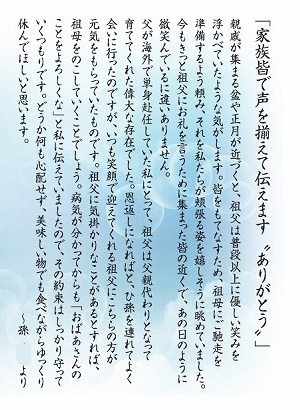 「家族皆で声を揃えて伝えます〝ありがとう〟」
親戚が集まる盆や正月が近づくと、祖父は普段以上に優しい笑みを
浮かべていたような気がします。皆をもてなすため、祖母にご馳走を
準備するよう頼み、それを私たちが頬張る姿を嬉しそうに眺めていました。
今もきっと祖父にお礼を言うために集まった皆の近くで、あの日のように
微笑んでいるに違いありません。
父が海外で単身赴任していた私にとって、祖父は父親代わりとなって
育ててくれた偉大な存在でした。恩返しになればと、ひ孫を連れてよく
会いに行ったのですが、いつも笑顔で迎えてくれる祖父にこちらの方が
元気をもらっていたものです。祖父に気掛かりなことがあるとすれば、
祖母をのこしていくことでしょう。病気が分かってからも「おばあさんの
ことをよろしくな」と私に伝えていましたので、その約束はしっかり守って
いくつもりです。どうか何も心配せず、美味しい物でも食べながらゆっくり
休んでほしいと思います。
～孫　より